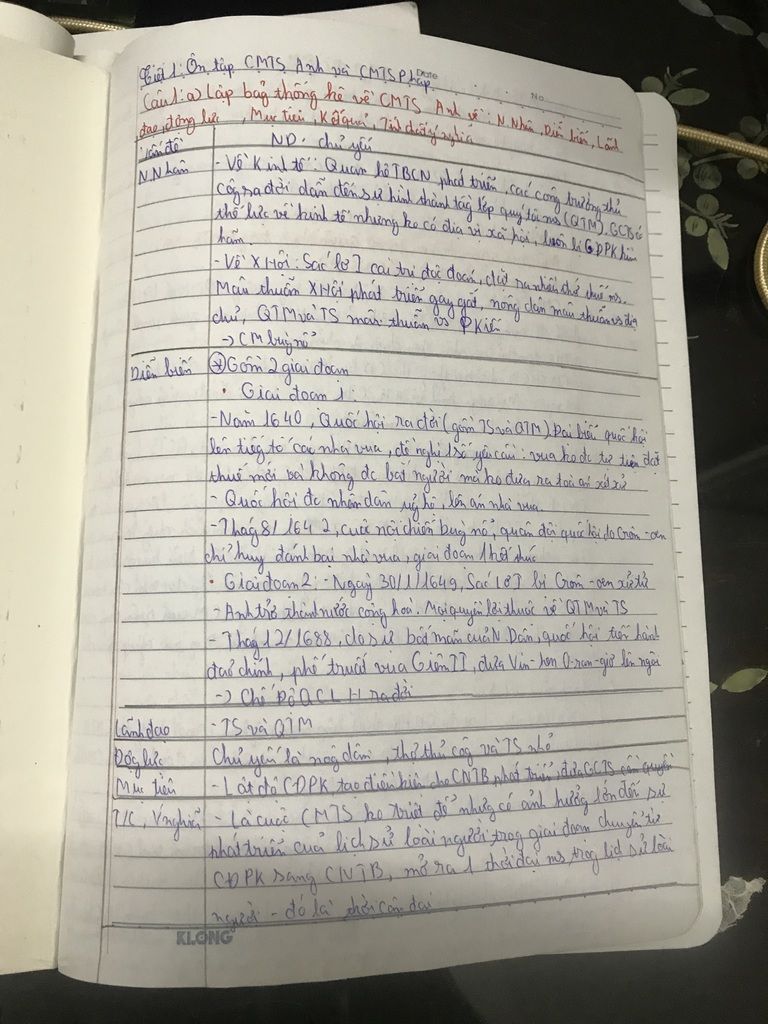 Tiết 1: Ôn tập CMTS Anh và CMTS Pháp
Date
No
Câu 1: a) Lập bảg thốg kê về CMTS Anh về: N.Nhân, Diễn biến, Lãnh
đạo, độg lực, Mục tiêu, Kết quả, Tính chất ý nghĩa
Vấn đề ND chủ yếu
N.Nhân - Về Kinh tế: Quan hệ TBCN phát triển, các công trường thủ
côg ra đời dẫn đến sự hình thành tầg lớp quý tộc ms (QTM). GCTS có
thế lực về kinh tế nhưng ko có địa vị xã hội, luôn bị CĐPK kìm
hãm.
- Về XHội: Sác lơ I cai trị độc đoán, đặt ra nhiều thứ thuế ms.
Mâu thuẫn XHội phát triển gay gắt, nông dân mâu thuẫn vs địa
chủ, QTM và TS mâu thuẫn vs PKiến
→ CM bùng nổ
Diễn biến * Gồm 2 giai đoạn
• Giai đoạn 1:
- Năm 1640, Quốc hội ra đời (gồm TS và QTM). Đại biểu quốc hội
lên tiếg tố cáo nhà vua, đề nghị 1 số yêu cầu: vua ko đc tự tiện đặt
thuế mới và không đc bắt người mà ko đưa ra toà án xét xử
- Quốc hội đc nhân dân ủg hộ, lên án nhà vua.
- Thág 8/1642, cuộc nội chiến bùg nổ, quân đội quốc hội do Crôm-oen
chỉ huy đánh bại nhà vua, giai đoạn 1 kết thúc
• Giai đoạn 2: - Ngày 30/1/1649, Sác lơ I bị Crôm-oen xử tử
- Anh trở thành nước cộng hoà. Mọi quyền lợi thuộc về QTM và TS
- Thág 12/1688, do sự bất mãn của N Dân, quốc hội tiến hành
đảo chính, phế truất vua Giêm II, đưa Vin-hem O-ran-giơ lên ngôi
→ Chế Độ QCLH ra đời
Lãnh đạo - TS và QTM
Độg lực Chủ yếu là nôg dân, thợ thủ côg và TS nhỏ
Mục tiêu - Lật đổ CĐPK, tạo điều kiện cho CNTB phát triển, đưa GCTS cầm quyền
T/C, Ý nghĩa - Là cuộc CMTS ko triệt để nhưng có ảnh hưởng lớn đến sự
phát triển của lịch sử loài người trog giai đoạn chuyển từ
CĐPK sang CNTB, mở ra 1 thời đại ms trog lịch sử loài
người - đó là thời cận đại
KLONG